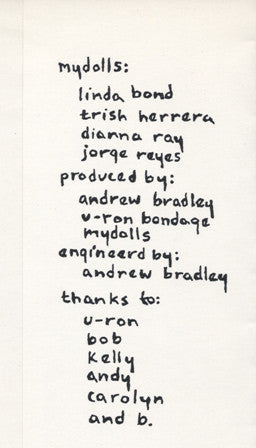 mydolls:
linda bond
trish herrera
dianna ray
jorge reyes
produced by:
andrew bradley
u-ron bondage
mydolls
engineerd by:
andrew bradley
thanks to:
u-ron
bob
kelly
andy
carolyn
and b.